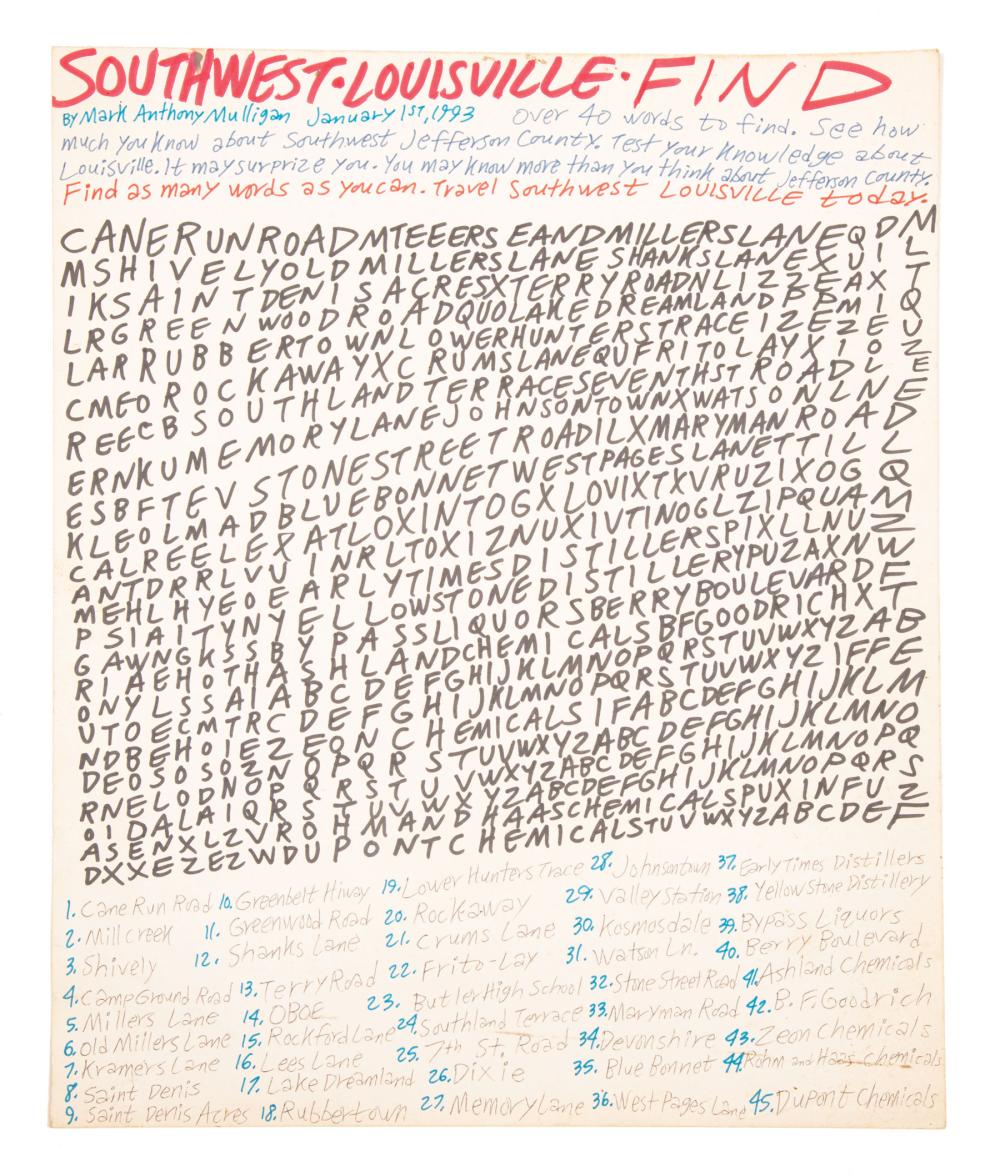 SOUTHWEST·LOUISVILLE·FIND
By Mark Anthony Mulligan January 1ST, 1993 over 40 words to find. See how
much you Know about Southwest Jefferson County. Test your Knowledge about
Louisville. It may surprize you. You may Know more than you think about Jefferson County.
Find as many words as you can. Travel Southwest LOUISVILLE today.
CANERUNROADMTEEERSEANDMILLERSLANEQDM
MSHIVELYOLDMILLERSLANESHANKSLANEXUIL
IKSAINTDENISACRESXTERRYROADNLIZZEAXT
LRGREENWOODROADQUOLAKEDREAMLANDPPMIQ
LARRUBBERTOWNLOWERHUNTERSTRACEIZEZEU
CMEOROCKAWAYXCRUMSLANEQUFRITOLAYXIOZ
REECBSOUTHLANDTERRACESEVENTHSTROADLE
ERNKUMEMORYLANEJOHNSONTOWNXWATSONLNE
ESBFTEVSTONESTREETROADILXMARYMANROAD
KLEOLMADBLUEBONNETWESTPAGESLANETTILL
CALREELEXATLOXINTOGXLOVIXTXVRUZIXOGQ
ANTDRRLVUINRLTOXIZNUXIVTINOGLZIPQUAM
MEHLHYEOEARLYTIMESDISTILLERSPIXLLNUZ
PSIAITYNYELLOWSTONEDISTILLERYPUZAXNW
GAWNGKSSBYPASSLIQUORSBERRYBOULEVARDF
RIAEHOTHASHLANDCHEMICALSBFGOODRICHXT
ONYLSSAIABCDEFGHIJKLMNOPQRSTUVWXYZAB
UTOECMTRCDEFGHIJKLMNOPQRSTUVWXYZIFFE
NDBEHOIEZEONCHEMICALSIFABCDEFGHIJKLM
DEOSOSOZNOPQRSTUVWXYZABCDEFGHIJKLMNO
RNELODNOPQRSTUVWXYZABCDEFGHIJKLMNOPQ
OIDALAIQRSTUVWXYZABCDEFGHIJKLMNOPQRS
ASENXLZVROHMANDHAASCHEMICALSPUXINFUZ
DXXEZEZWDUPONTCHEMICALSTUVWXYZABCDEF
1. Cane Run Road
2. Mill Creek
3. Shively
4. Camp Ground Road
5. Millers Lane
6. Old Millers Lane
7. Kramers Lane
8. Saint Denis
9. Saint Denis Acres
10. Greenbelt Hiway
11. Greenwood Road
12. Shanks Lane
13. Terry Road
14. OBOE
15. Rockford Lane
16. Lees Lane
17. Lake Dreamland
18. Rubbertown
19. Lower Hunters Trace
20. Rockaway
21. Crums Lane
22. Frito-Lay
23. Butler High School
24. Southland Terrace
25. 7th St. Road
26. Dixie
27. Memory Lane
28. Johnsontown
29. Valley Station
30. Kosmosdale
31. Watson Ln.
32. Stone Street Road
33. Maryman Road
34. Devonshire
35. Blue Bonnet
36. West Pages Lane
37. Early Times Distillers
38. Yellow Stone Distillery
39. Bypass Liquors
40. Berry Boulevard
41. Ashland Chemicals
42. B. F. Goodrich
43. Zeon Chemicals
44. Rohm and Haas Chemicals
45. DuPont Chemicals